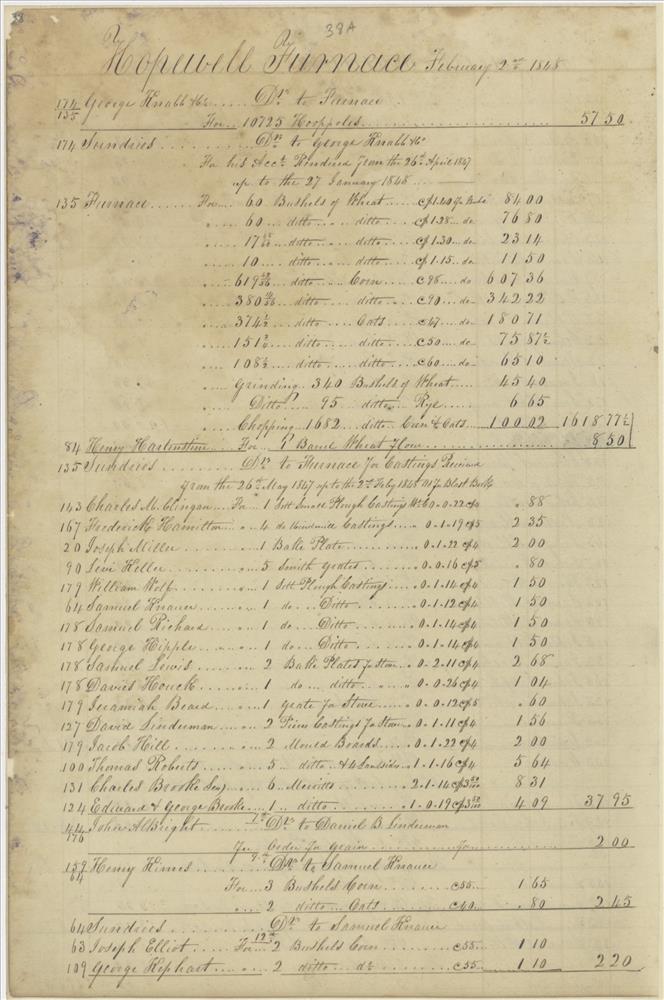 38
39A
Hopewell Furnace February 2nd 1848
174/135 George Knabb &Co ..... Dr. to Furnace
For .. 10725 Hooppoles 57 50
174 Sundries .......... Dr. to George Knabb &Co
For his Acct. Rendered from the 26th April 1847
up to the 27 January 1848
135 Furnace ..... For ... 60 Bushels of Wheat .... @ 1.40 84 00
60 ... ditto ... ditto ... @ 1.28 ... do 76 80
17 ... ditto ... ditto ... @ 1.30 ... do 23 14
10 ... ditto ... ditto ... @ 1.15 .. do 11 50
619 ... ditto ... Corn ... c 98 ... do 607 36
380 ... ditto ... ditto ... c 90 ... do 342 22
374½ ... ditto ... Oats ... c 47 ... do 180 71
151 ... ditto ... ditto ... c 50 ... do 75 87½
108½ ... ditto ... ditto ... c 60 ... do 65 10
Grinding .. 340 Bushels of Wheat .... 45 40
Ditto .... 95 ditto .. Rye ..... 6 65
Chopping .. 1682 .. ditto .. Corn & Oats .. 100 02 1618 77½
84 Henry Hartenstine .. For ... 1 Barrel Wheat Flour 8 50
135 Sundries .......... Dr. to Furnace for Castings Received
from the 26th May 1847 up to the 2nd Feby 1848 as pr Blast Book
143 Charles M. Clingan ... For ... 1 Sett Small Plough Castings Wt 0-0-22 @4 .88
167 Frederick Hamilton ... 4 do Windmill Castings ... 0-1-19 @5 2 35
20 Joseph Miller ... 1 Bake Plate ... 0-1-22 @4 2 00
90 Levi Heller ... 5 Smith Grates ... 0-0-16 @5 .80
179 William Wolf ... 1 Sett Plough Castings ... 0-1-14 @4 1 50
64 Samuel Knauer ... 1 do ... Ditto ... 0-1-12 @4 1 50
178 Samuel Richard ... 1 do ... Ditto ... 0-1-14 @4 1 50
178 George Hipple ... 1 do ... Ditto ... 0-1-14 @4 1 50
178 Samuel Lewis ... 2 Bake Plates for Stove .. 0-2-11 @4 2 68
178 David Houck ... 1 do ... ditto ... 0-0-26 @4 1 04
179 Jeremiah Beard ... 1 grate for Stove ... 0-0-12 @5 .60
127 David Linderman ... 2 Castings for Stove .. 0-1-11 @4 1 56
179 Jacob Hill ... 2 Mould Boards ... 0-1-22 @4 2 00
100 Thomas Roberts ... 5 ... ditto .. & 4 Landsides .. 1-1-16 @4 5 64
131 Charles Brooke ... 6 ... 2-1-14 8 31
124 Edward & George Brooke ... 1 .. ditto ... 1-0-19 4 09 37 95
John Albright ... Dr. to Daniel B. Linderman
Per Order for Grain ... 2 00
159/64 Henry Himes ... Dr. to Samuel Knauer
For ... 3 Bushels Corn ... c 55 ... 1 65
2 ditto ... Oats ... c 40 ... .80 2 45
64 Sundries ... Dr. to Samuel Knauer
63 Joseph Elliot ... For ... 2 Bushels Corn ... c 55 ... 1 10
109 George Kephart ... 2 ditto ... do ... c 55 ... 1 10 2 20